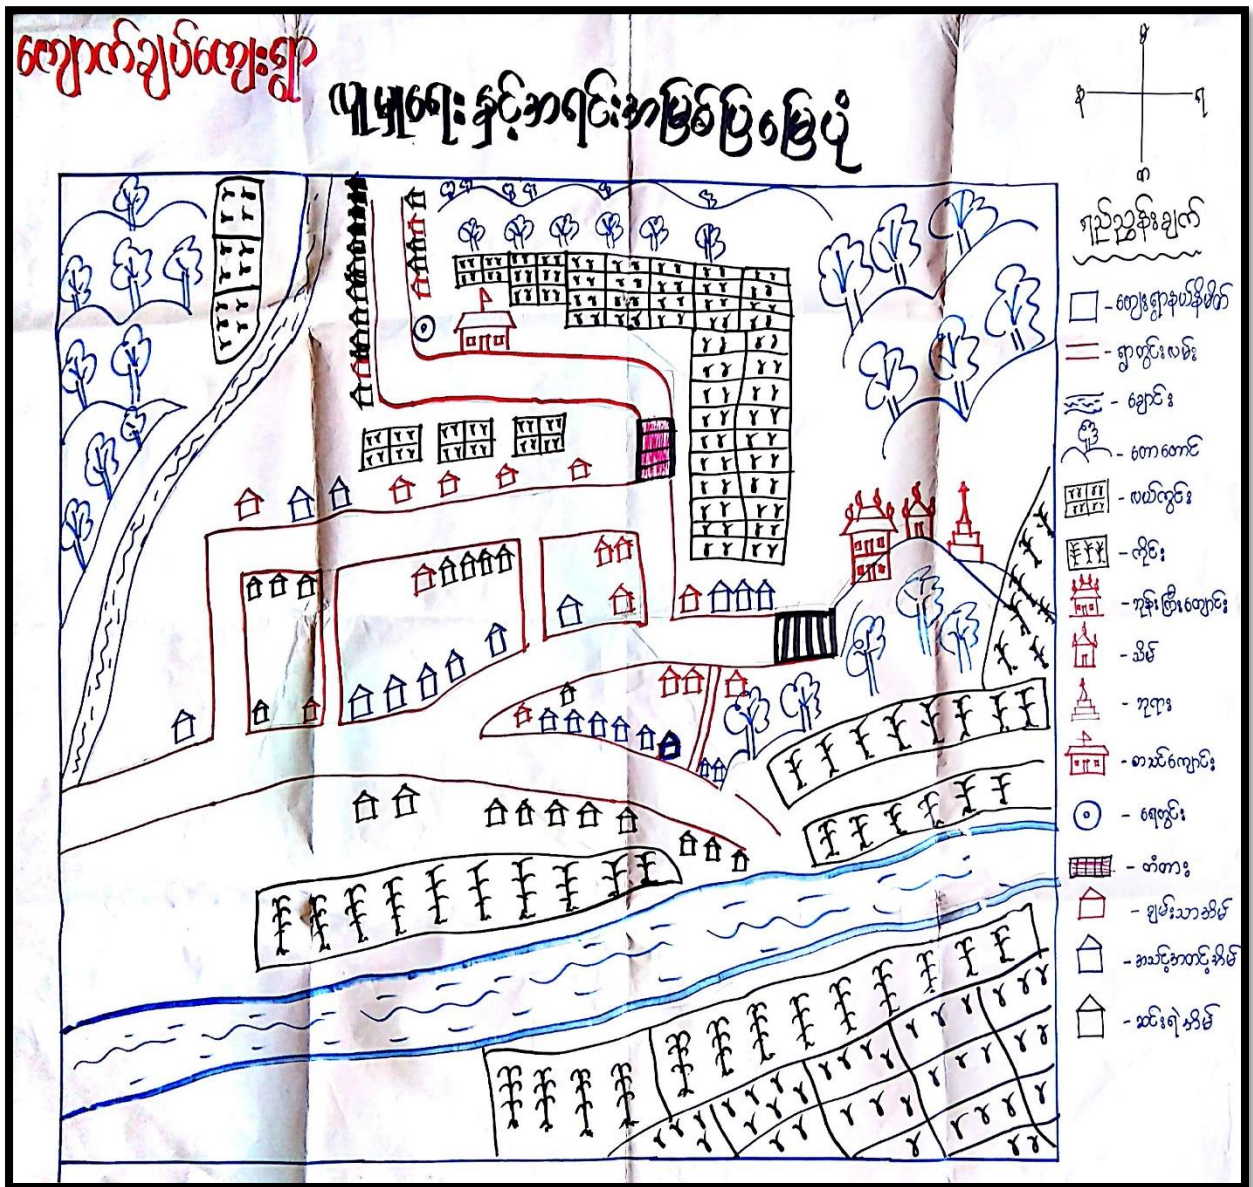 ကျောက်ချပ်ကျေးရွာ
လူမှုရေးနှင့်အရင်းအမြစ်ပြမြေပုံ
မ
န
ရ
တ
ရည်ညွှန်းချက်
- ကျေးရွာနယ်နိမိတ်
- ရွာတွင်းလမ်း
- ချောင်း
- တောတောင်
- လယ်ကွင်း
- ကိုင်း
- ဘုန်းကြီးကျောင်း
- သိမ်
- ဘုရား
- စာသင်ကျောင်း
- ရေတွင်း
- တံတား
- ချမ်းသာအိမ်
- အသင့်အတင့်အိမ်
- ဆင်းရဲအိမ်